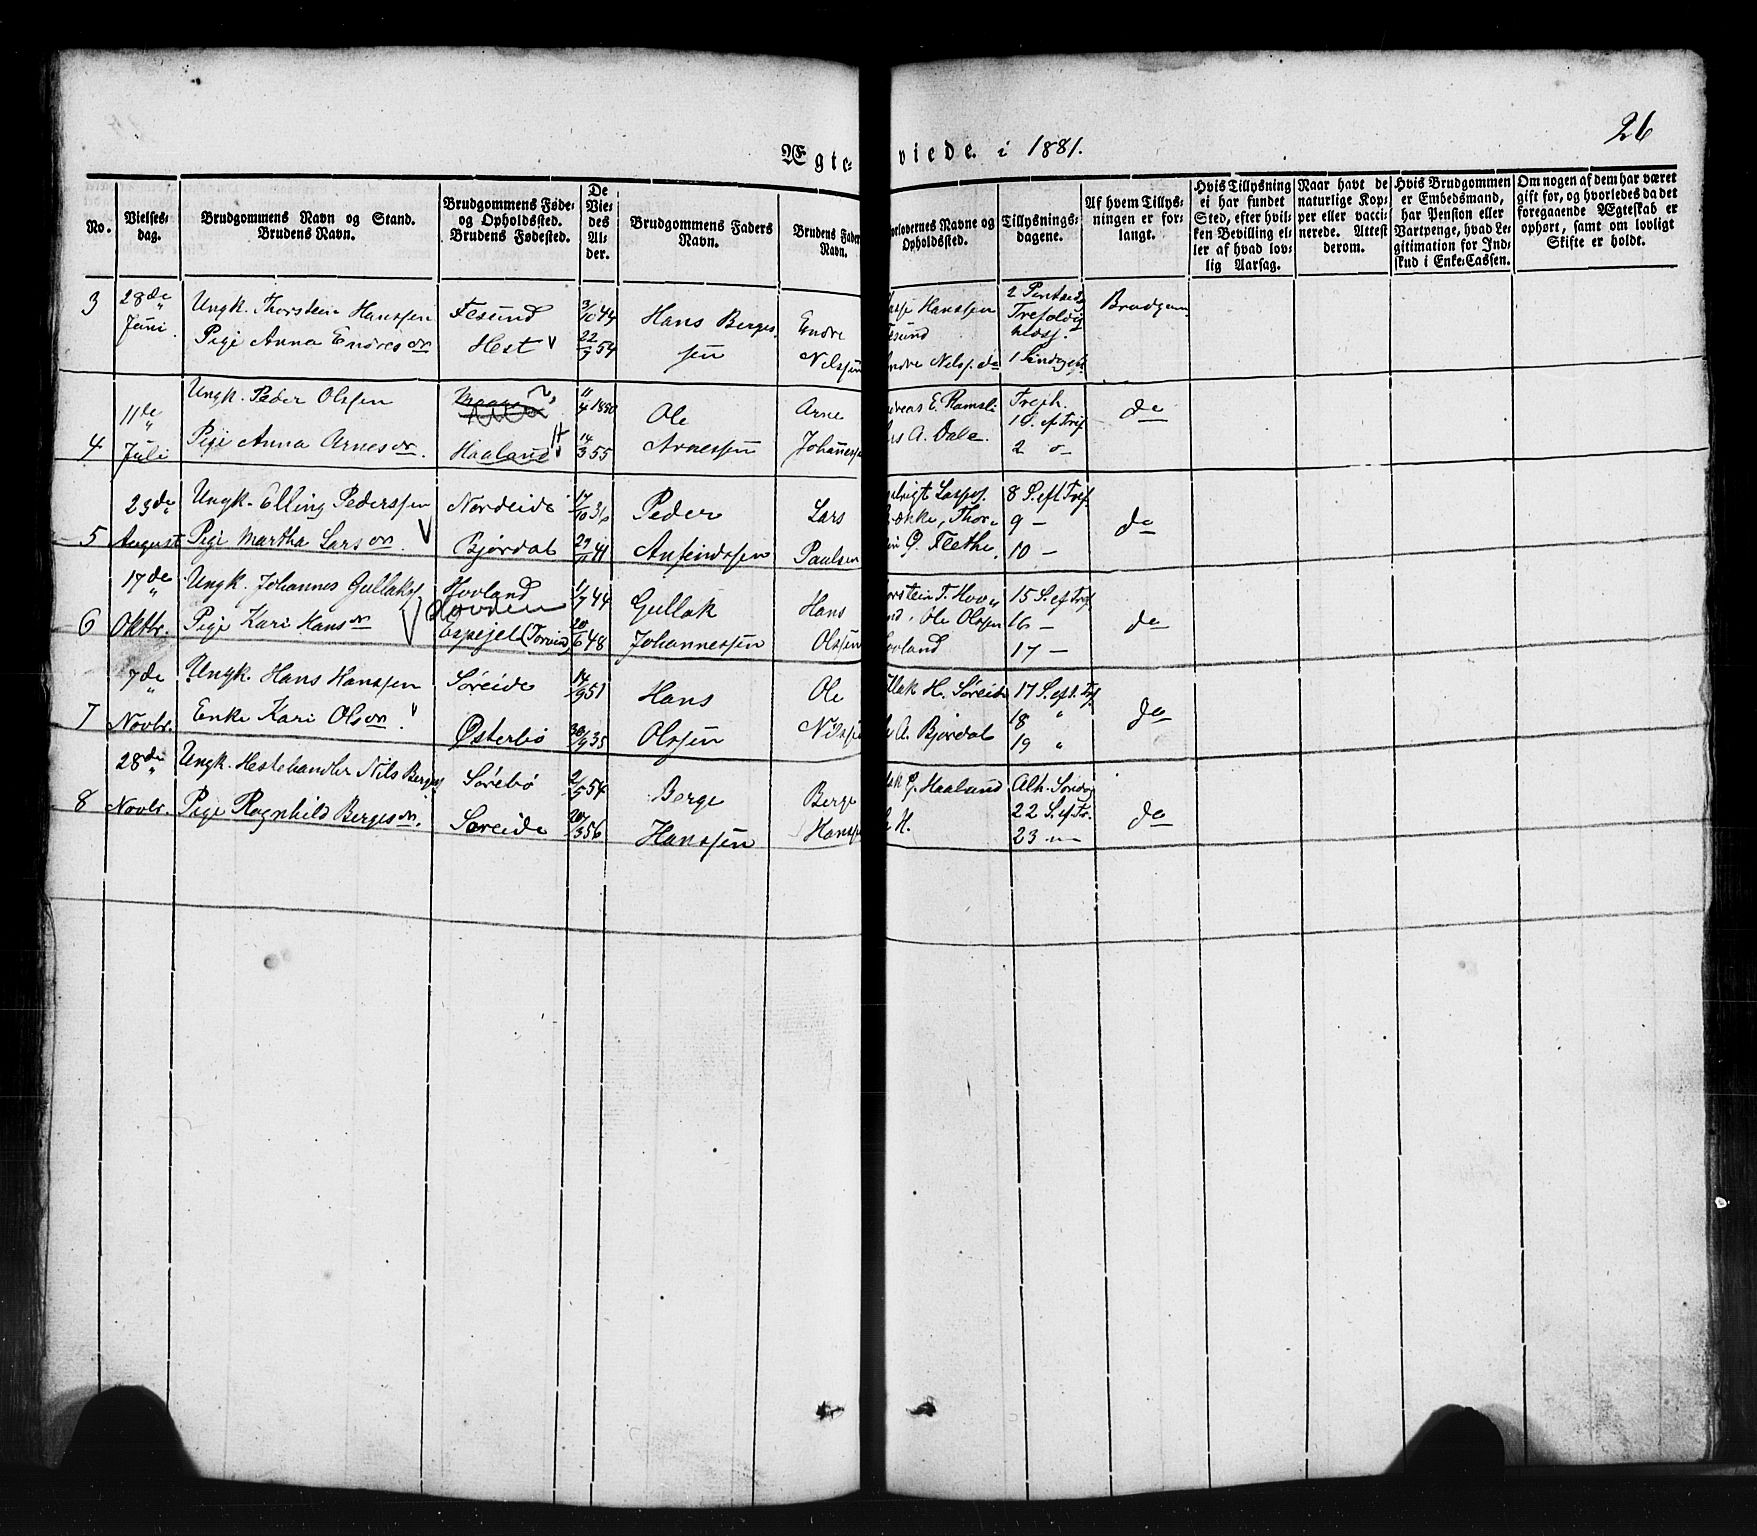 26
Ægte- viede. i 1881.
No.
Vielses-
dag.
Brudgommens Navn og Stand.
Brudens Navn.
Brudgommens Føde-
og Opholdssted.
Brudens Fødested.
De
Vie-
des
Al-
der.
Brudgommens Faders
Navn.
Brudens Faders
Navn.
orlovernes Navne og
Opholdssted.
Tillysnings-
dagene.
Af hvem Tillys-
ningen er for-
langt.
Hvis Tillysning
ei har fundet
Sted, efter hvil-
ken Bevilling el-
ler af hvad lov-
lig Aarsag.
Naar havt de
naturlige Kop-
per eller vacci-
nerede. Attest
derom.
Hvis Brudgommen
er Embedsmand,
har Pension eller
Vartpenge, hvad Le-
gitimation for Ind-
skud i Enke-Cassen.
Om nogen af dem har været
gift før, og hvorledes da det
foregaaende Ægteskab er
ophørt, samt om lovligt
Skifte er holdt.
3
28de
Juni.
Ungk. Thorstein Hanssen
Pige Anna Endresdr
Fesund
Hest
3/10 44
22/9 54
Hans Berges
sen
Endre
Nilssen
Hanssen
esund
ndre Nilss. do
2 Pintsedg
Trefoldig
hedss.
1 Søndag eft
Brudgom
4
11de
Juli
Ungk. Peder Olssen
Pige Anna Arnesdr.
Haaland
11/4 1850
14/3 55
Ole
Arnessen
Arne
Johannesse
dreas E. Ramsli
A. Dale.
Trefh.
1 S. ef Tref
2 do
do
5
23de
August
Ungk. Elling Pederssen
Pige Martha Larsdr.
Nordeide
Bjørdal
17/10 31
29/11 41
Peder
Ansindssen
Lars
Paulsen
Larss.
økke, Thor-
P. Flethe.
8 S. eft Tref.
9 —
10 —
do
6
17de
Oktbr.
Ungk. Johannes Gullakss
Pige Kari Hansdr
Hovland
Hovden
Espejel (Torvund)
1/7 44
20/6 48
Gullak
Johannessen
Hans
Olssen
orstein T. Hov
nd, Ole Olssen
ovland
15 S. ef Tref
16 —
17 —
do
7
7de
Novbr.
Ungk. Hans Hanssen
Enke Kari Olsdr.
Søreide
Østerbø
14/9 51
30/9 35
Hans
Olssen
Ole
Nilsse
llak H. Søreide
A. Bjørdal
17 S. eft. Tf.
18 "
19 "
do
8
28de
Novbr.
Ungk. Hestehandler Nils Bergess
Pige Ragnhild Bergesdr.
Sørebø
Søreide
2/5 54
20/3 56
Berge
Hanssen
Berge
Hansse
P. Haaland
H.
Alh. Søndag
22 S. ef. Tr.
23 —
do